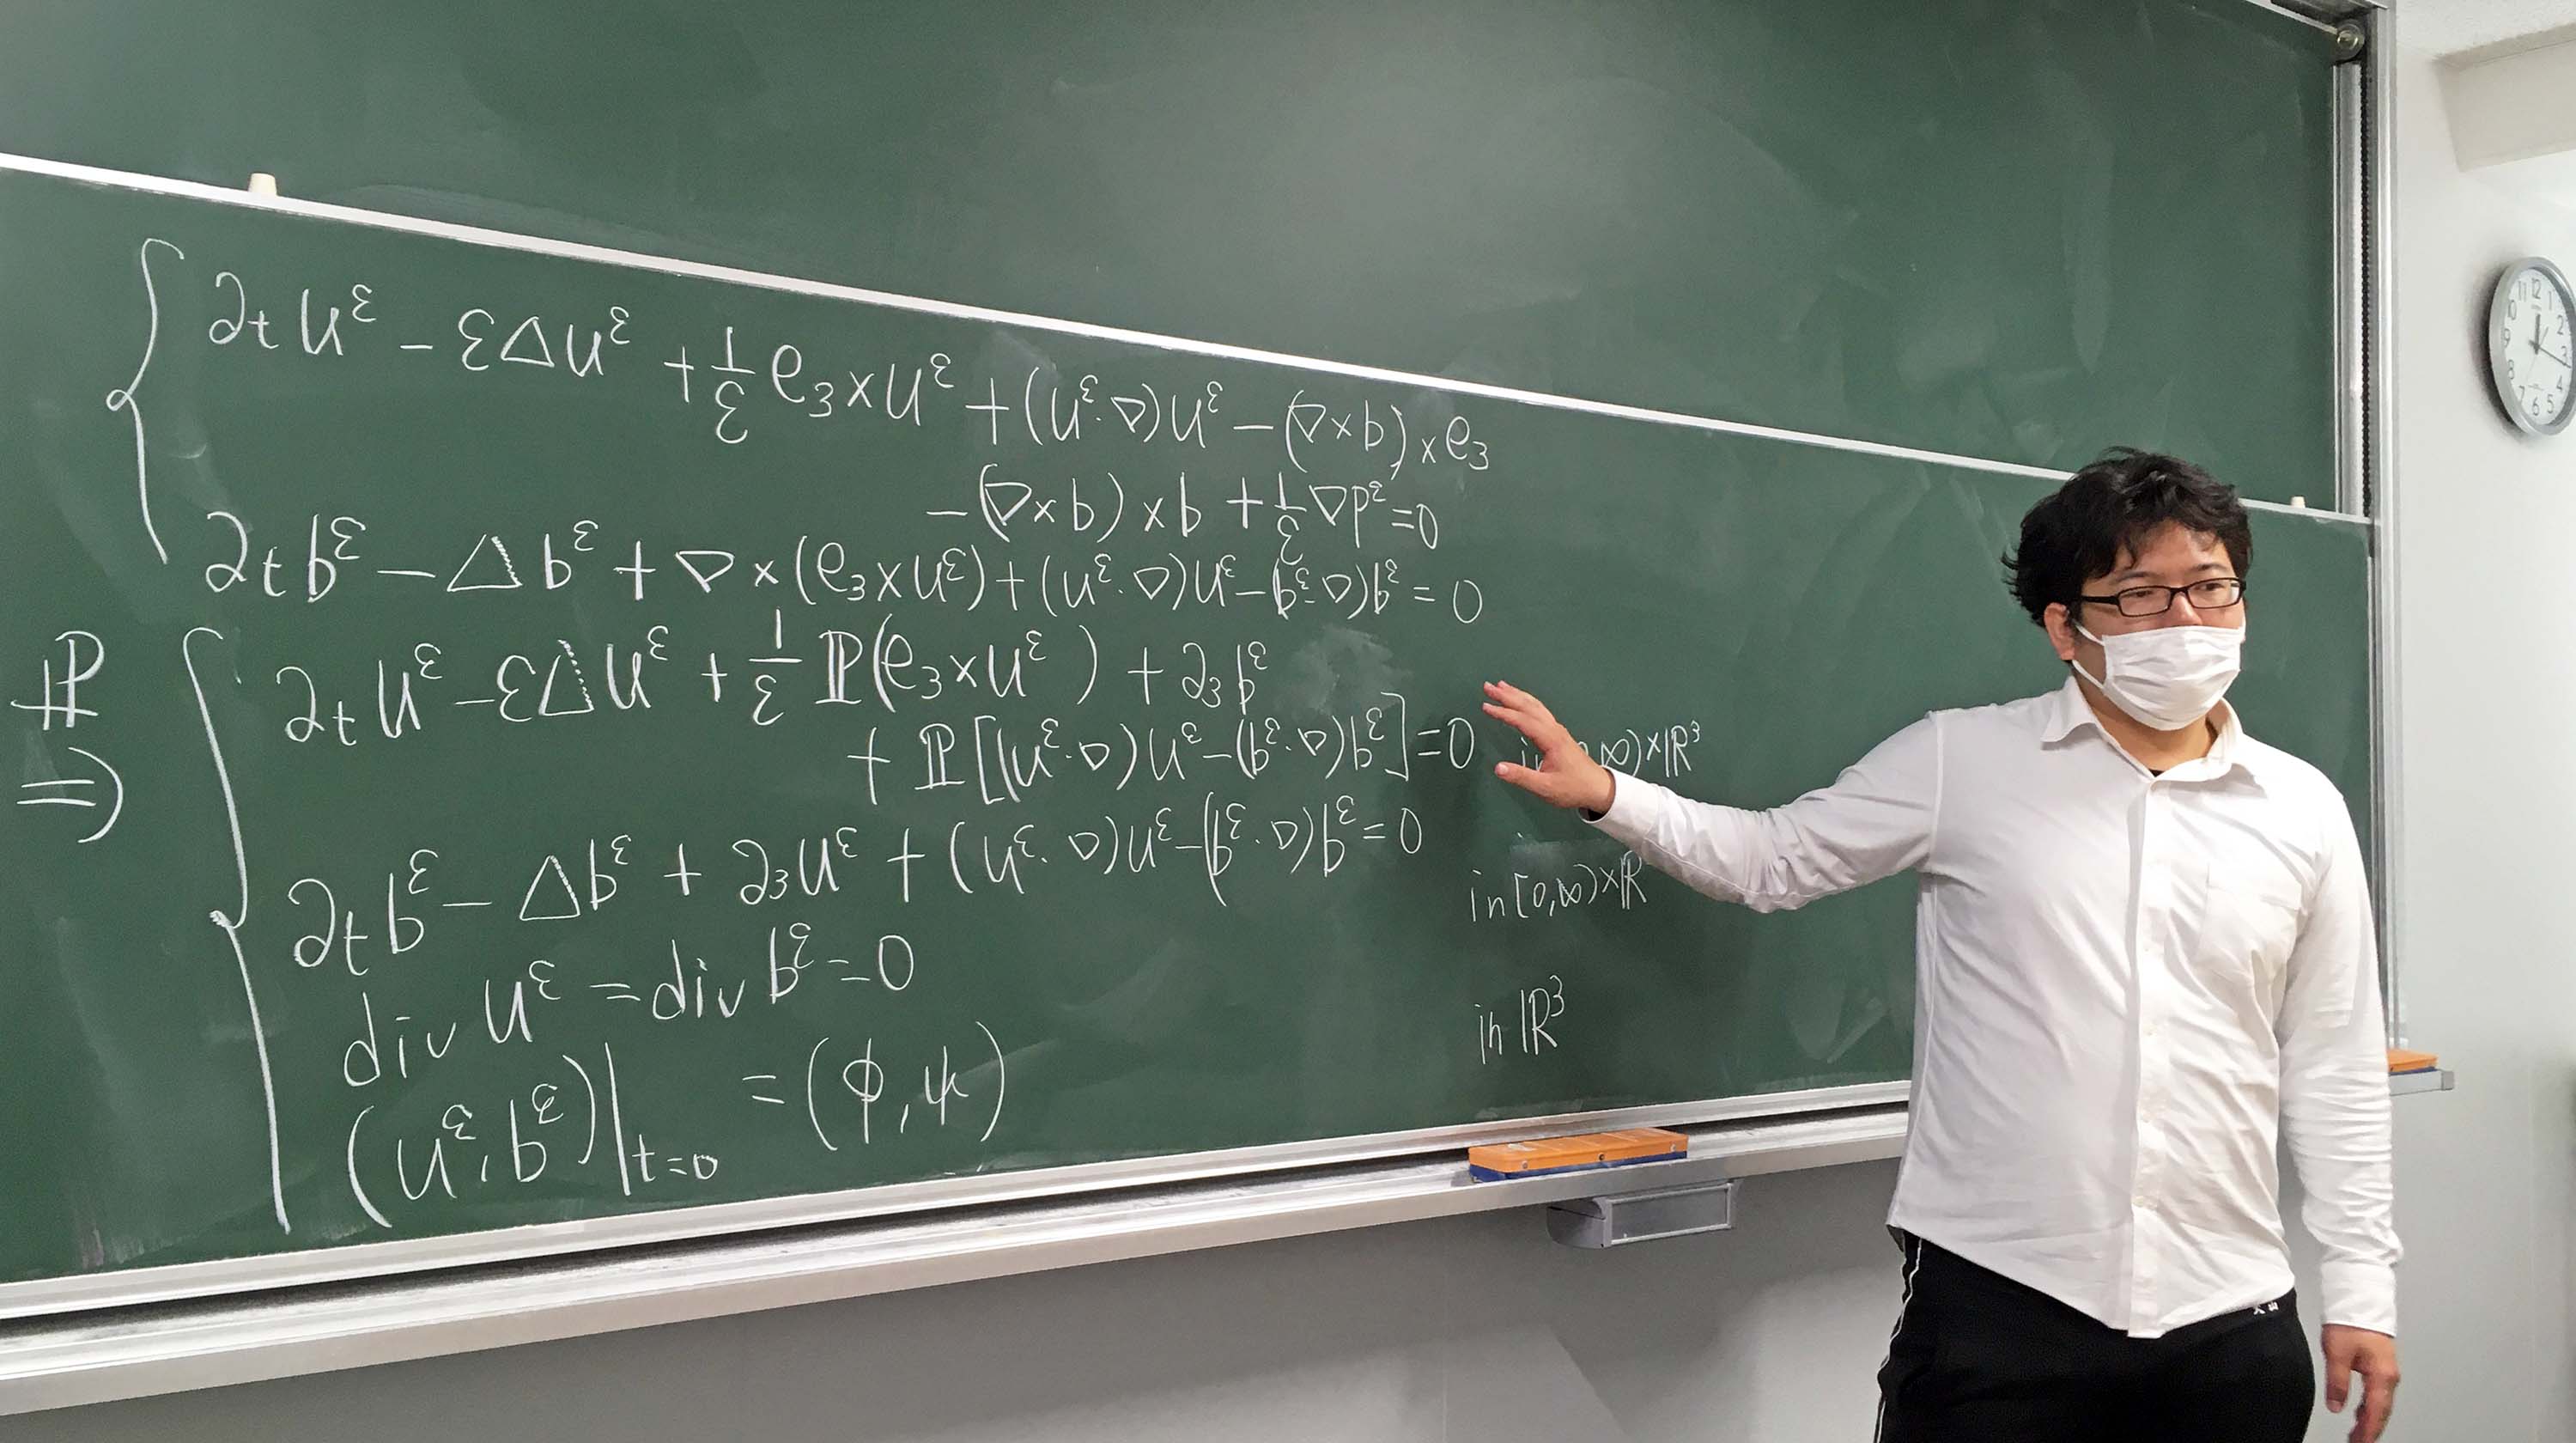 ∂t u^ε − εΔu^ε + 1/ε e₃×u^ε + (u^ε·∇)u^ε − (∇×b)×e₃
− (∇×b)×b + 1/ε ∇p^ε = 0
∂t b^ε − Δb^ε + ∇×(e₃×u^ε) + (u^ε·∇)u^ε − (b^ε·∇)b^ε = 0
ℙ
⇒
∂t u^ε − εΔu^ε + 1/ε ℙ(e₃×u^ε) + ∂₃b^ε
+ ℙ[(u^ε·∇)u^ε − (b^ε·∇)b^ε] = 0 in ∞)×ℝ³
∂t b^ε − Δb^ε + ∂₃u^ε + (u^ε·∇)u^ε − (b^ε·∇)b^ε = 0 in [0,∞)×ℝ
div u^ε = div b^ε = 0
(u^ε, b^ε)|t=0 = (φ, ψ) in ℝ³
11 12 1
10 2
9 3
8 4
7 6 5